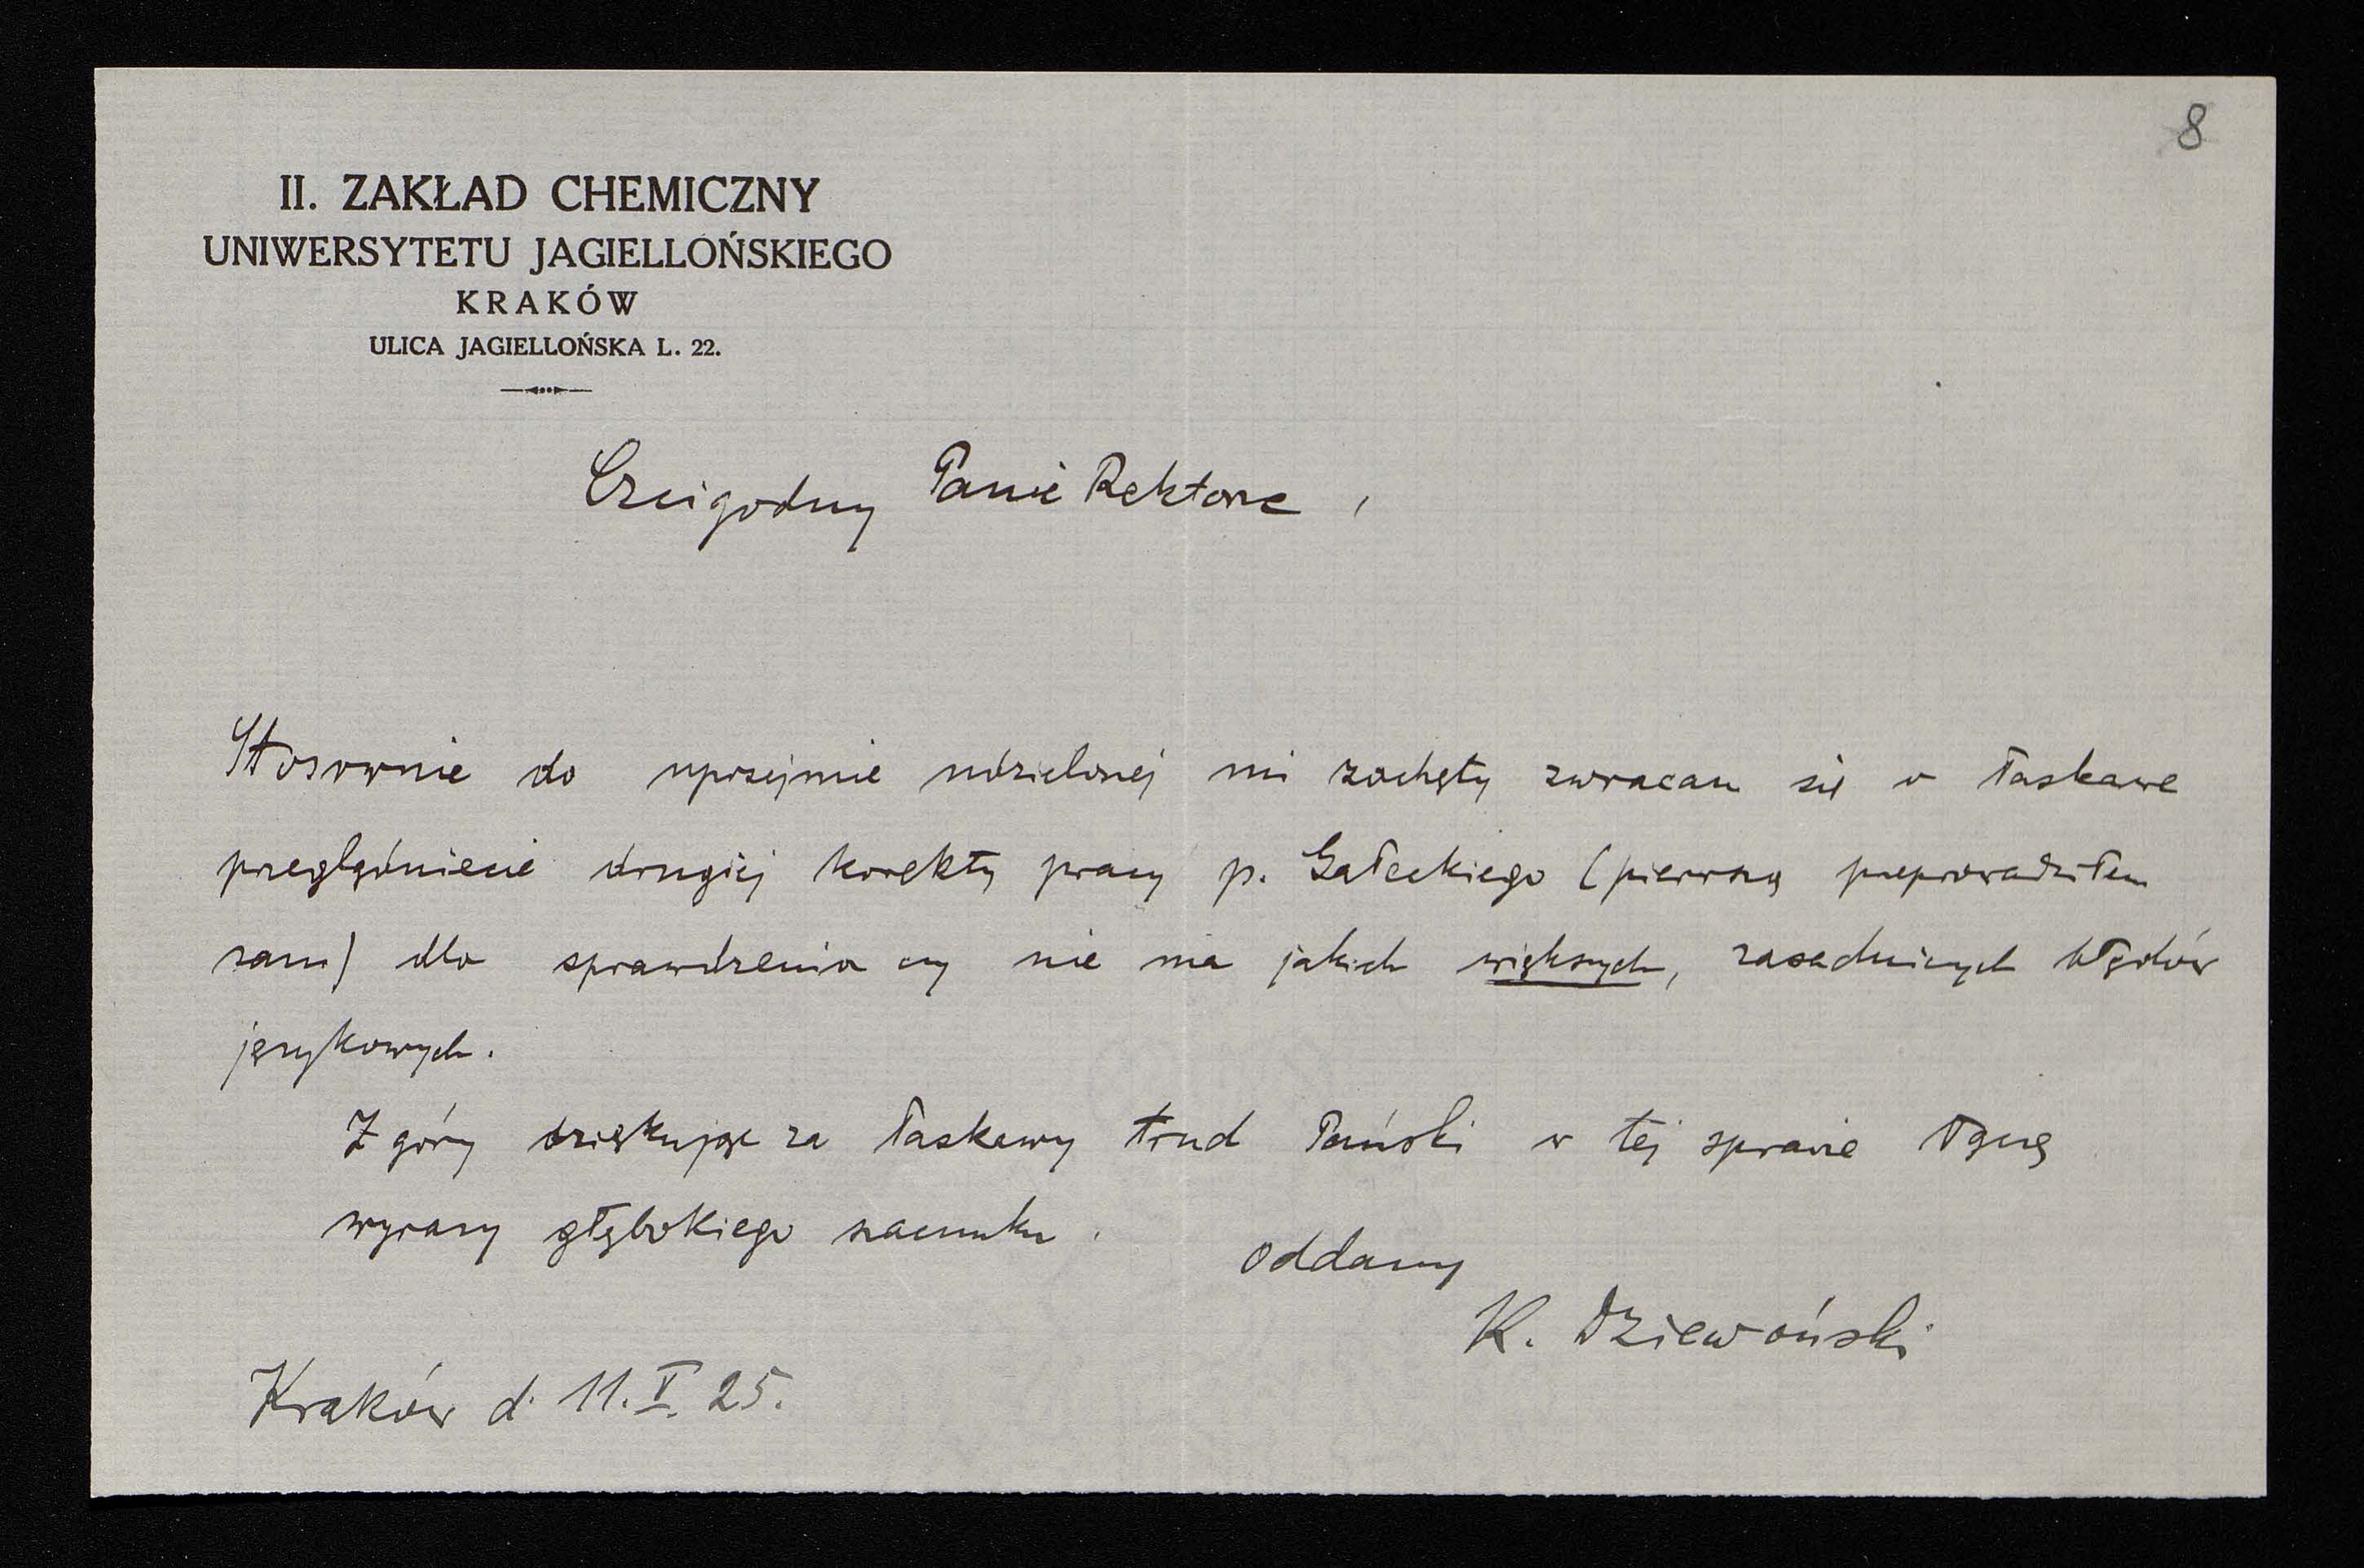 8
II. ZAKŁAD CHEMICZNY
UNIWERSYTETU JAGIELLOŃSKIEGO
KRAKÓW
ULICA JAGIELLOŃSKA L. 22.
Czcigodny Panie Rektorze,
Stosownie do uprzejmie udzielonej mi zachęty zwracam się o łaskawe
przeglądniecie drugiej korekty pracy p. Gałeckiego (pierwszą przeprowadziłem
sam) dla sprawdzenia czy nie ma jakich większych, zasadniczych błędów
językowych.
Z góry dziękując za łaskawy trud Pański w tej sprawie łączę
wyrazy głębokiego szacunku.
oddany
K. Dziewoński
Kraków d. 11. V. 25.